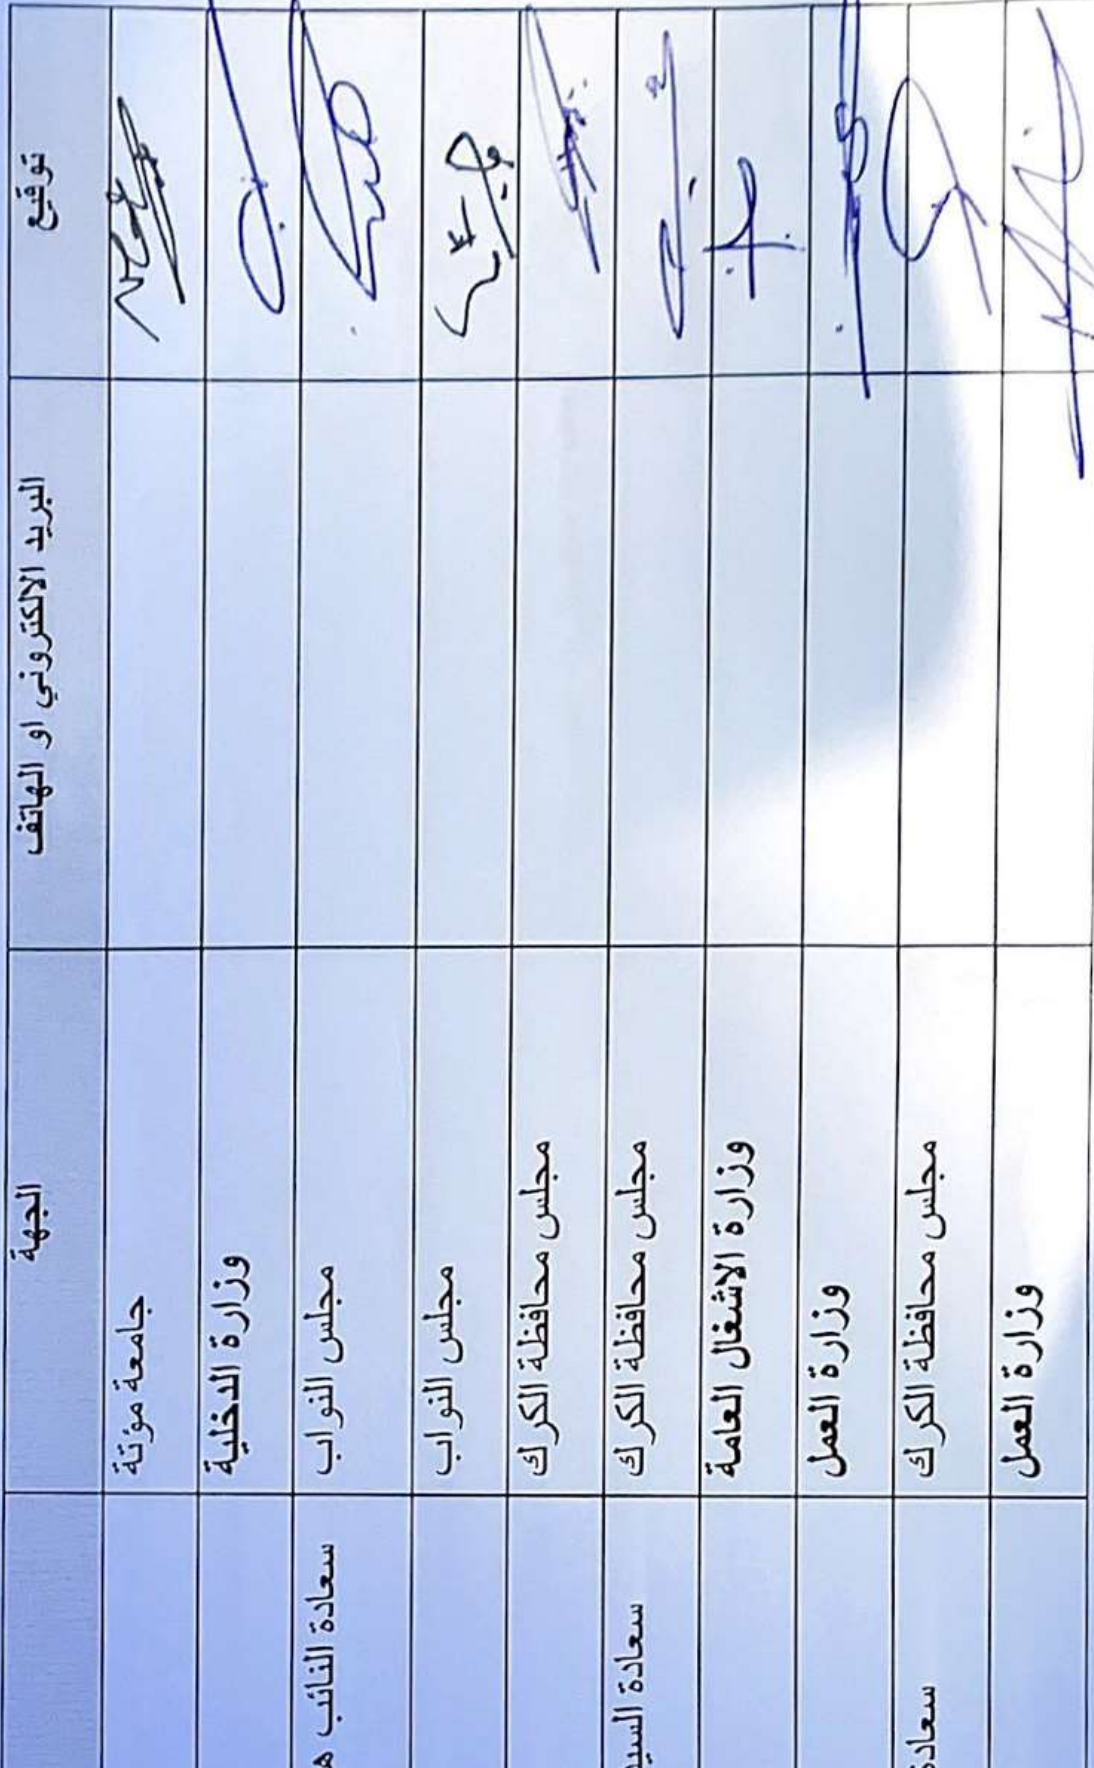 الجهة البريد الالكتروني او الهاتف توقيع
جامعة مؤتة
وزارة الدخلية
سعادة النائب ه مجلس النواب
مجلس النواب
مجلس محافظة الكرك
سعادة السيد مجلس محافظة الكرك
وزارة الاشغال العامة
وزارة العمل
سعادة مجلس محافظة الكرك
وزارة العمل